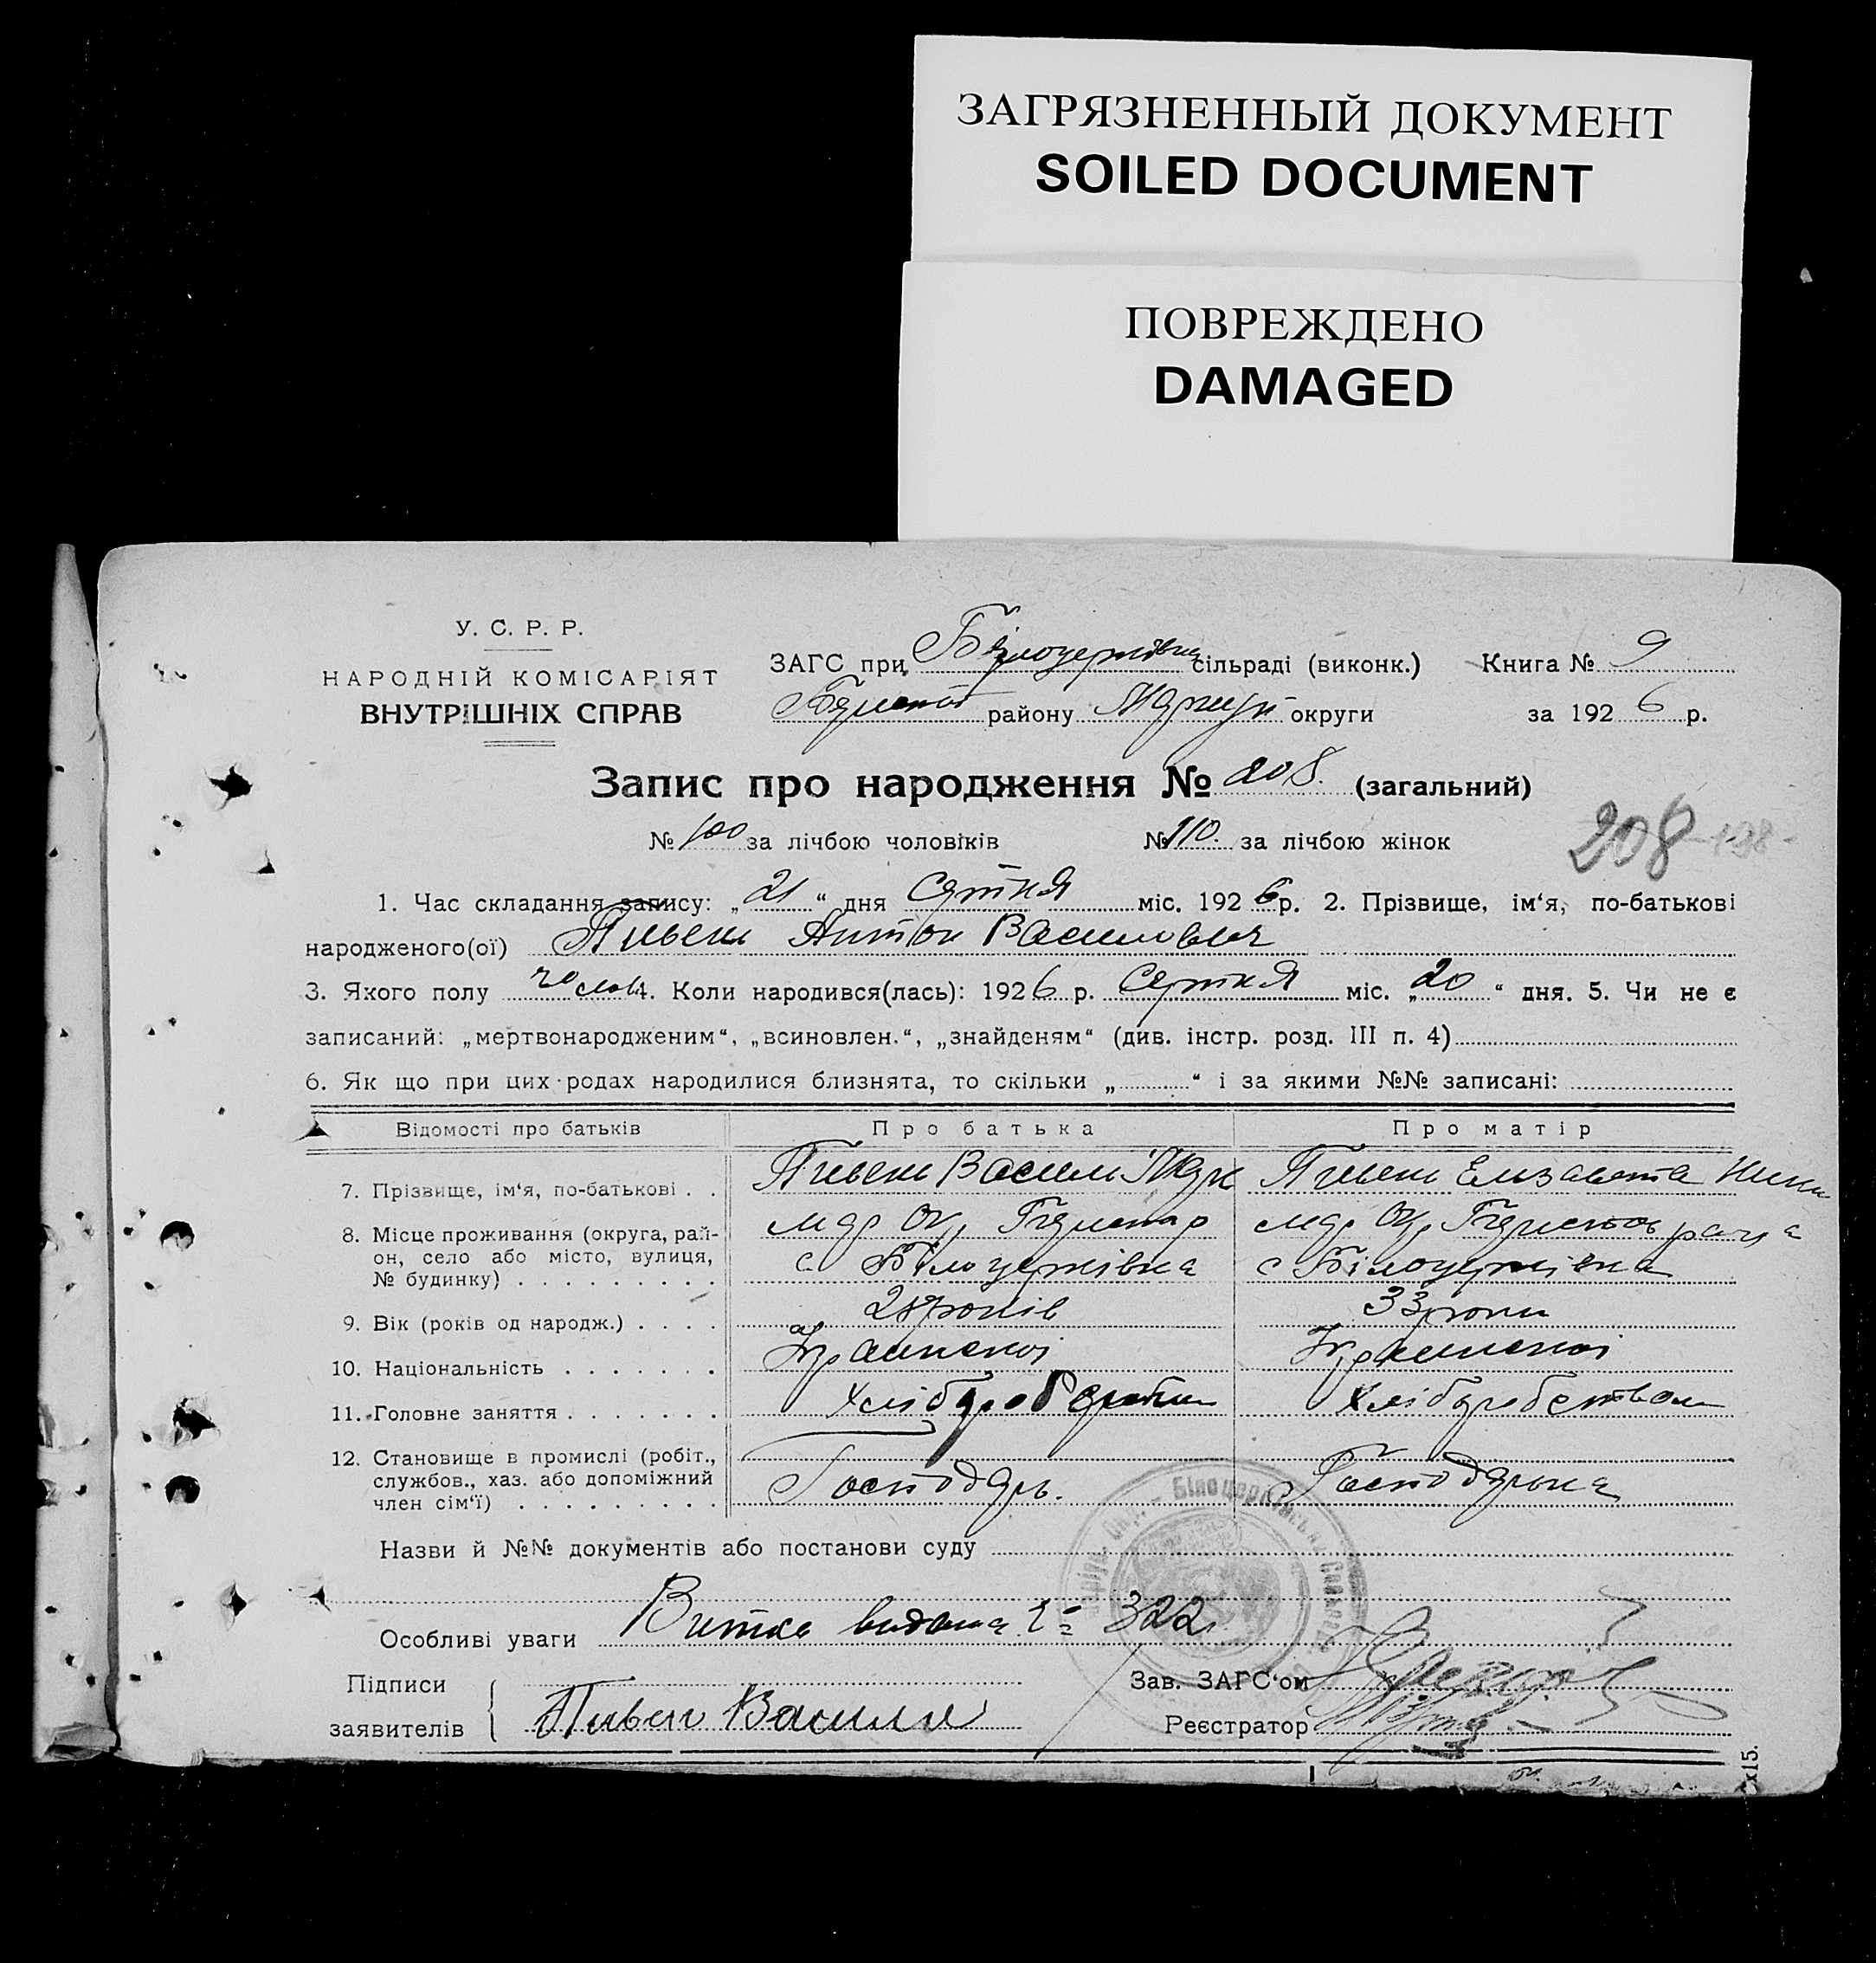 ЗАГРЯЗНЕННЫЙ ДОКУМЕНТ
SOILED DOCUMENT
ПОВРЕЖДЕНО
DAMAGED
У. С. Р. Р.
НАРОДНІЙ КОМІСАРІЯТ
ВНУТРІШНІХ СПРАВ
ЗАГС при Білоцерківка сільраді (виконк.) Книга № 9
району округи за 1926 р.
Запис про народження № 208. (загальний)
№ 100 за лічбою чоловіків № 110. за лічбою жінок
208
1. Час складання запису: „21“ дня Серпня міс. 1926 р. 2. Прізвище, ім‘я, по-батькові
народженого(ої) Пивень Антон Василович
3. Якого полу чолов 4. Коли народився(лась): 1926 р. Серпня міс. „20“ дня. 5. Чи не є
записаний: „мертвонародженим“, „всиновлен.“, „знайденям“ (див. інстр. розд. III п. 4)
6. Як що при цих родах народилися близнята, то скільки „ “ і за якими №№ записані:
Відомості про батьків Про батька Про матір
7. Прізвище, ім‘я, по-батькові . . Пивень Василь Пивень Елизавета
8. Місце проживання (округа, рай-
он, село або місто, вулиця, с Білоцерківка с Білоцерківка
№ будинку) . . . . . . . . .
9. Вік (років од народж.) . . . . років 33 роки
10. Національність . . . . . . . Українскої Українскої
11. Головне заняття . . . . . . . Хліборобство Хліборобством
12. Становище в промислі (робіт.,
службов., хаз. або допоміжний Господарь. Господарька
член сім‘ї) . . . . . . . . .
Назви й №№ документів або постанови суду
Білоцерківська Сільрада
Особливі уваги Витка видана 322
Підписи Зав. ЗАГС‘ом
заявителів Пивен Василь Реєстратор